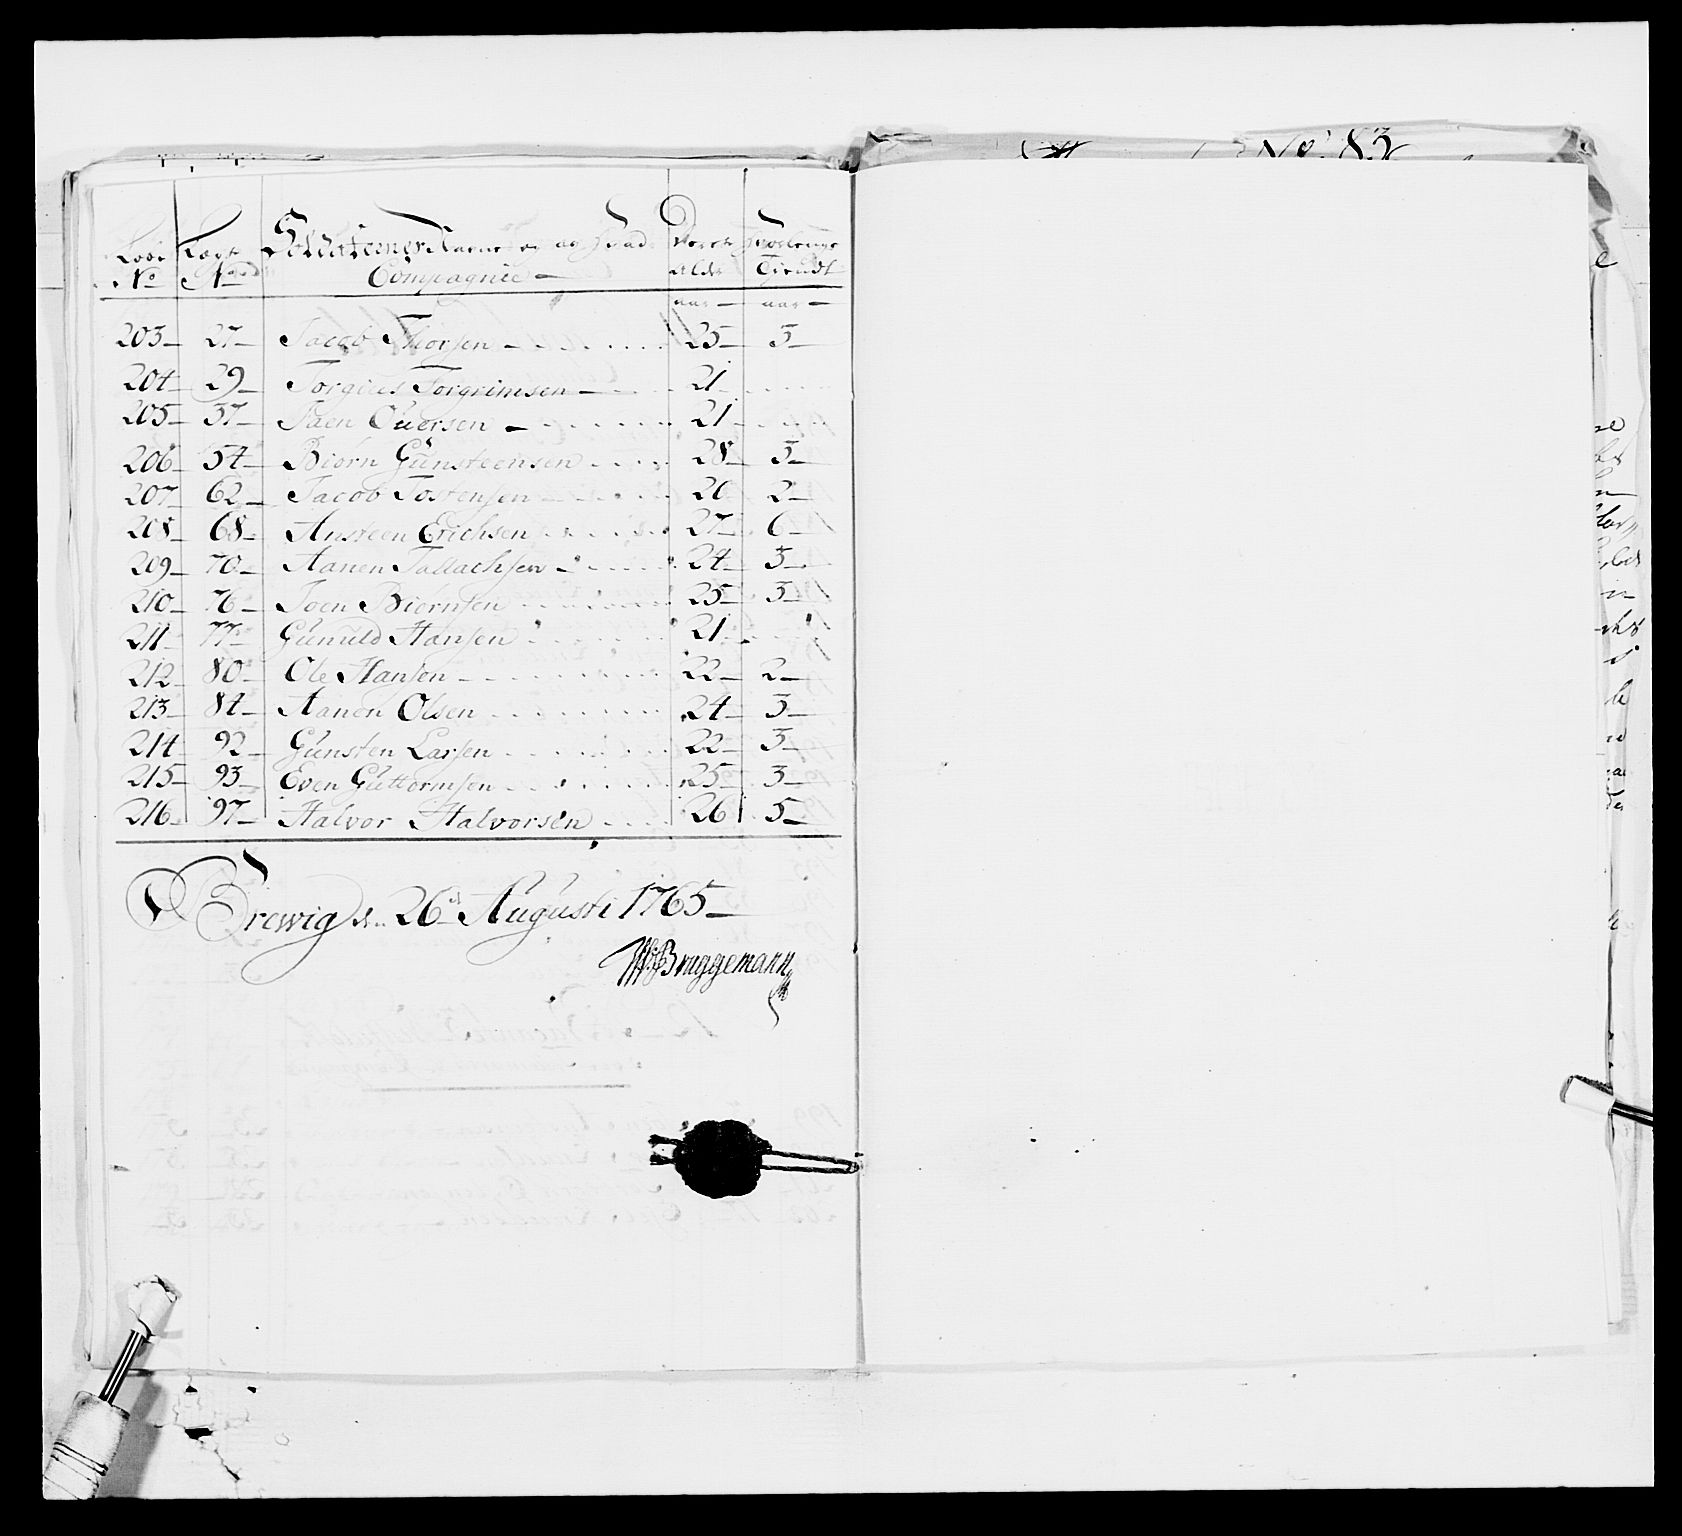 No: 83
Løbe Lægd Soldaternes Navne og af hvad Deres Hvorlenge
No No Compagnie Alder Tiendt
aar aar
203 27 Jacob Thorsen 25 3
204 29 Torgius Torgrimsen 21
205 37 Paen Ouersen 21
206 54 Biørn Gunsteensen 28 3
207 62 Jacob Tostensen 20 2
208 68 Ansteen Erichsen 27 6
209 70 Aanen Tallachsen 24 3
210 76 Joen Biørnsen 25 3
211 77 Gunuld Hansen 21
212 80 Ole Hansen 22 2
213 84 Aanon Olsen 24 3
214 92 Gunsten Larsen 22 3
215 93 Even Guttormsen 25 3
216 97 Halvor Halvorsen 26 5
Brewig d. 26 d Augusti 1765
Bruggemann